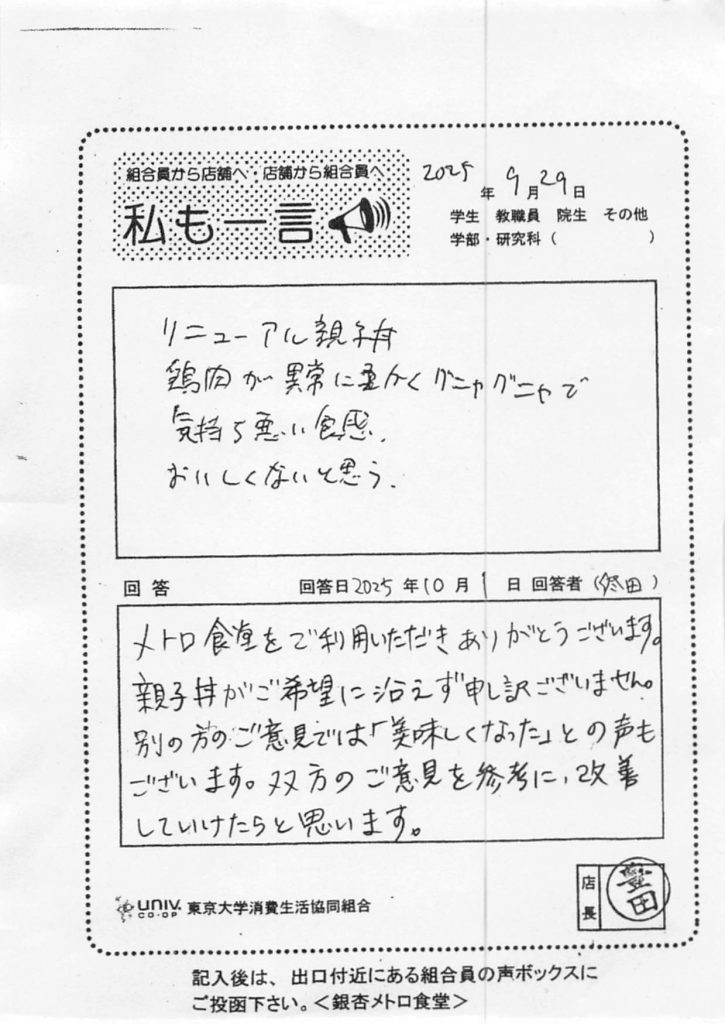 組合員から店舗へ・店舗から組合員へ
私も一言
2025年9月29日
学生 教職員 院生 その他
学部・研究科( )
リニューアル親子丼
鶏肉が異常に柔かくグニャグニャで
気持ち悪い食感.
おいしくないと思う.
回答 回答日2025年10月1日 回答者(田)
メトロ食堂をご利用いただきありがとうございます。
親子丼がご希望に沿えず申し訳ございません。
別の方のご意見では「美味しくなった」との声も
ございます。双方のご意見を参考に、改善
していけたらと思います。
UNIV. CO-OP 東京大学消費生活協同組合
店長 豊田
記入後は、出口付近にある組合員の声ボックスに
ご投函下さい。<銀杏メトロ食堂>